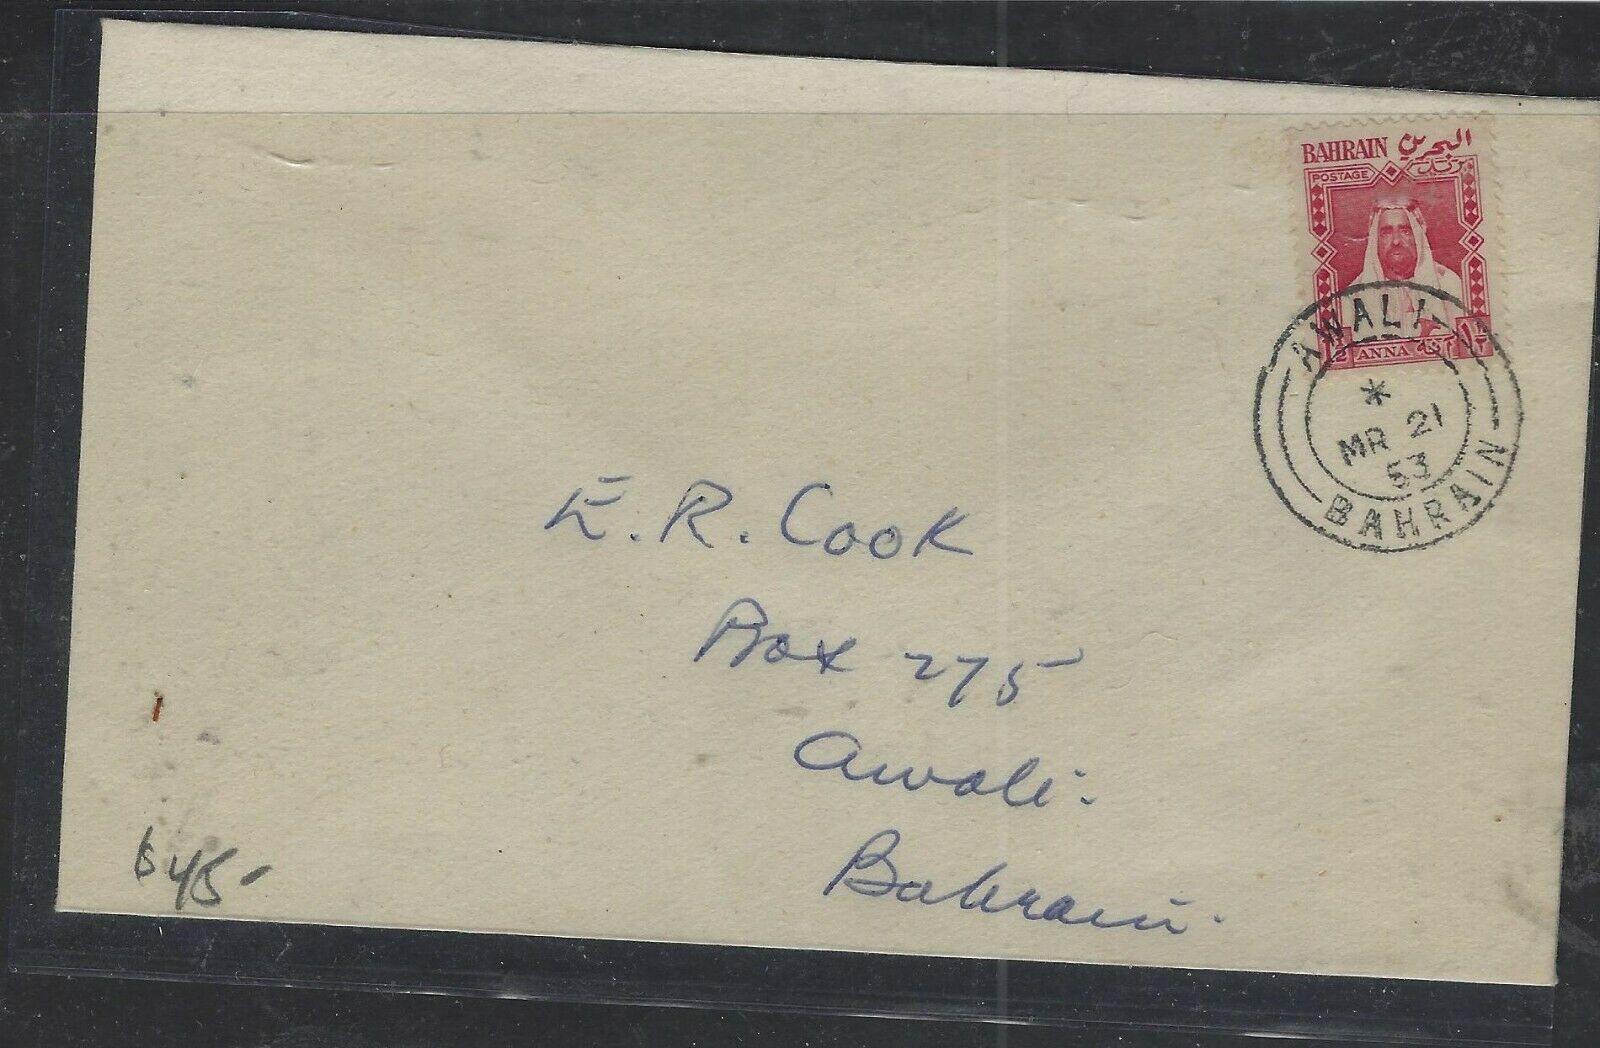 BAHRAIN البحرين
POSTAGE
ANNA آنه
AWALI
*
MR 21
53
BAHRAIN
E. R. Cook
Box 275
Awali.
Bahrain.
$45-